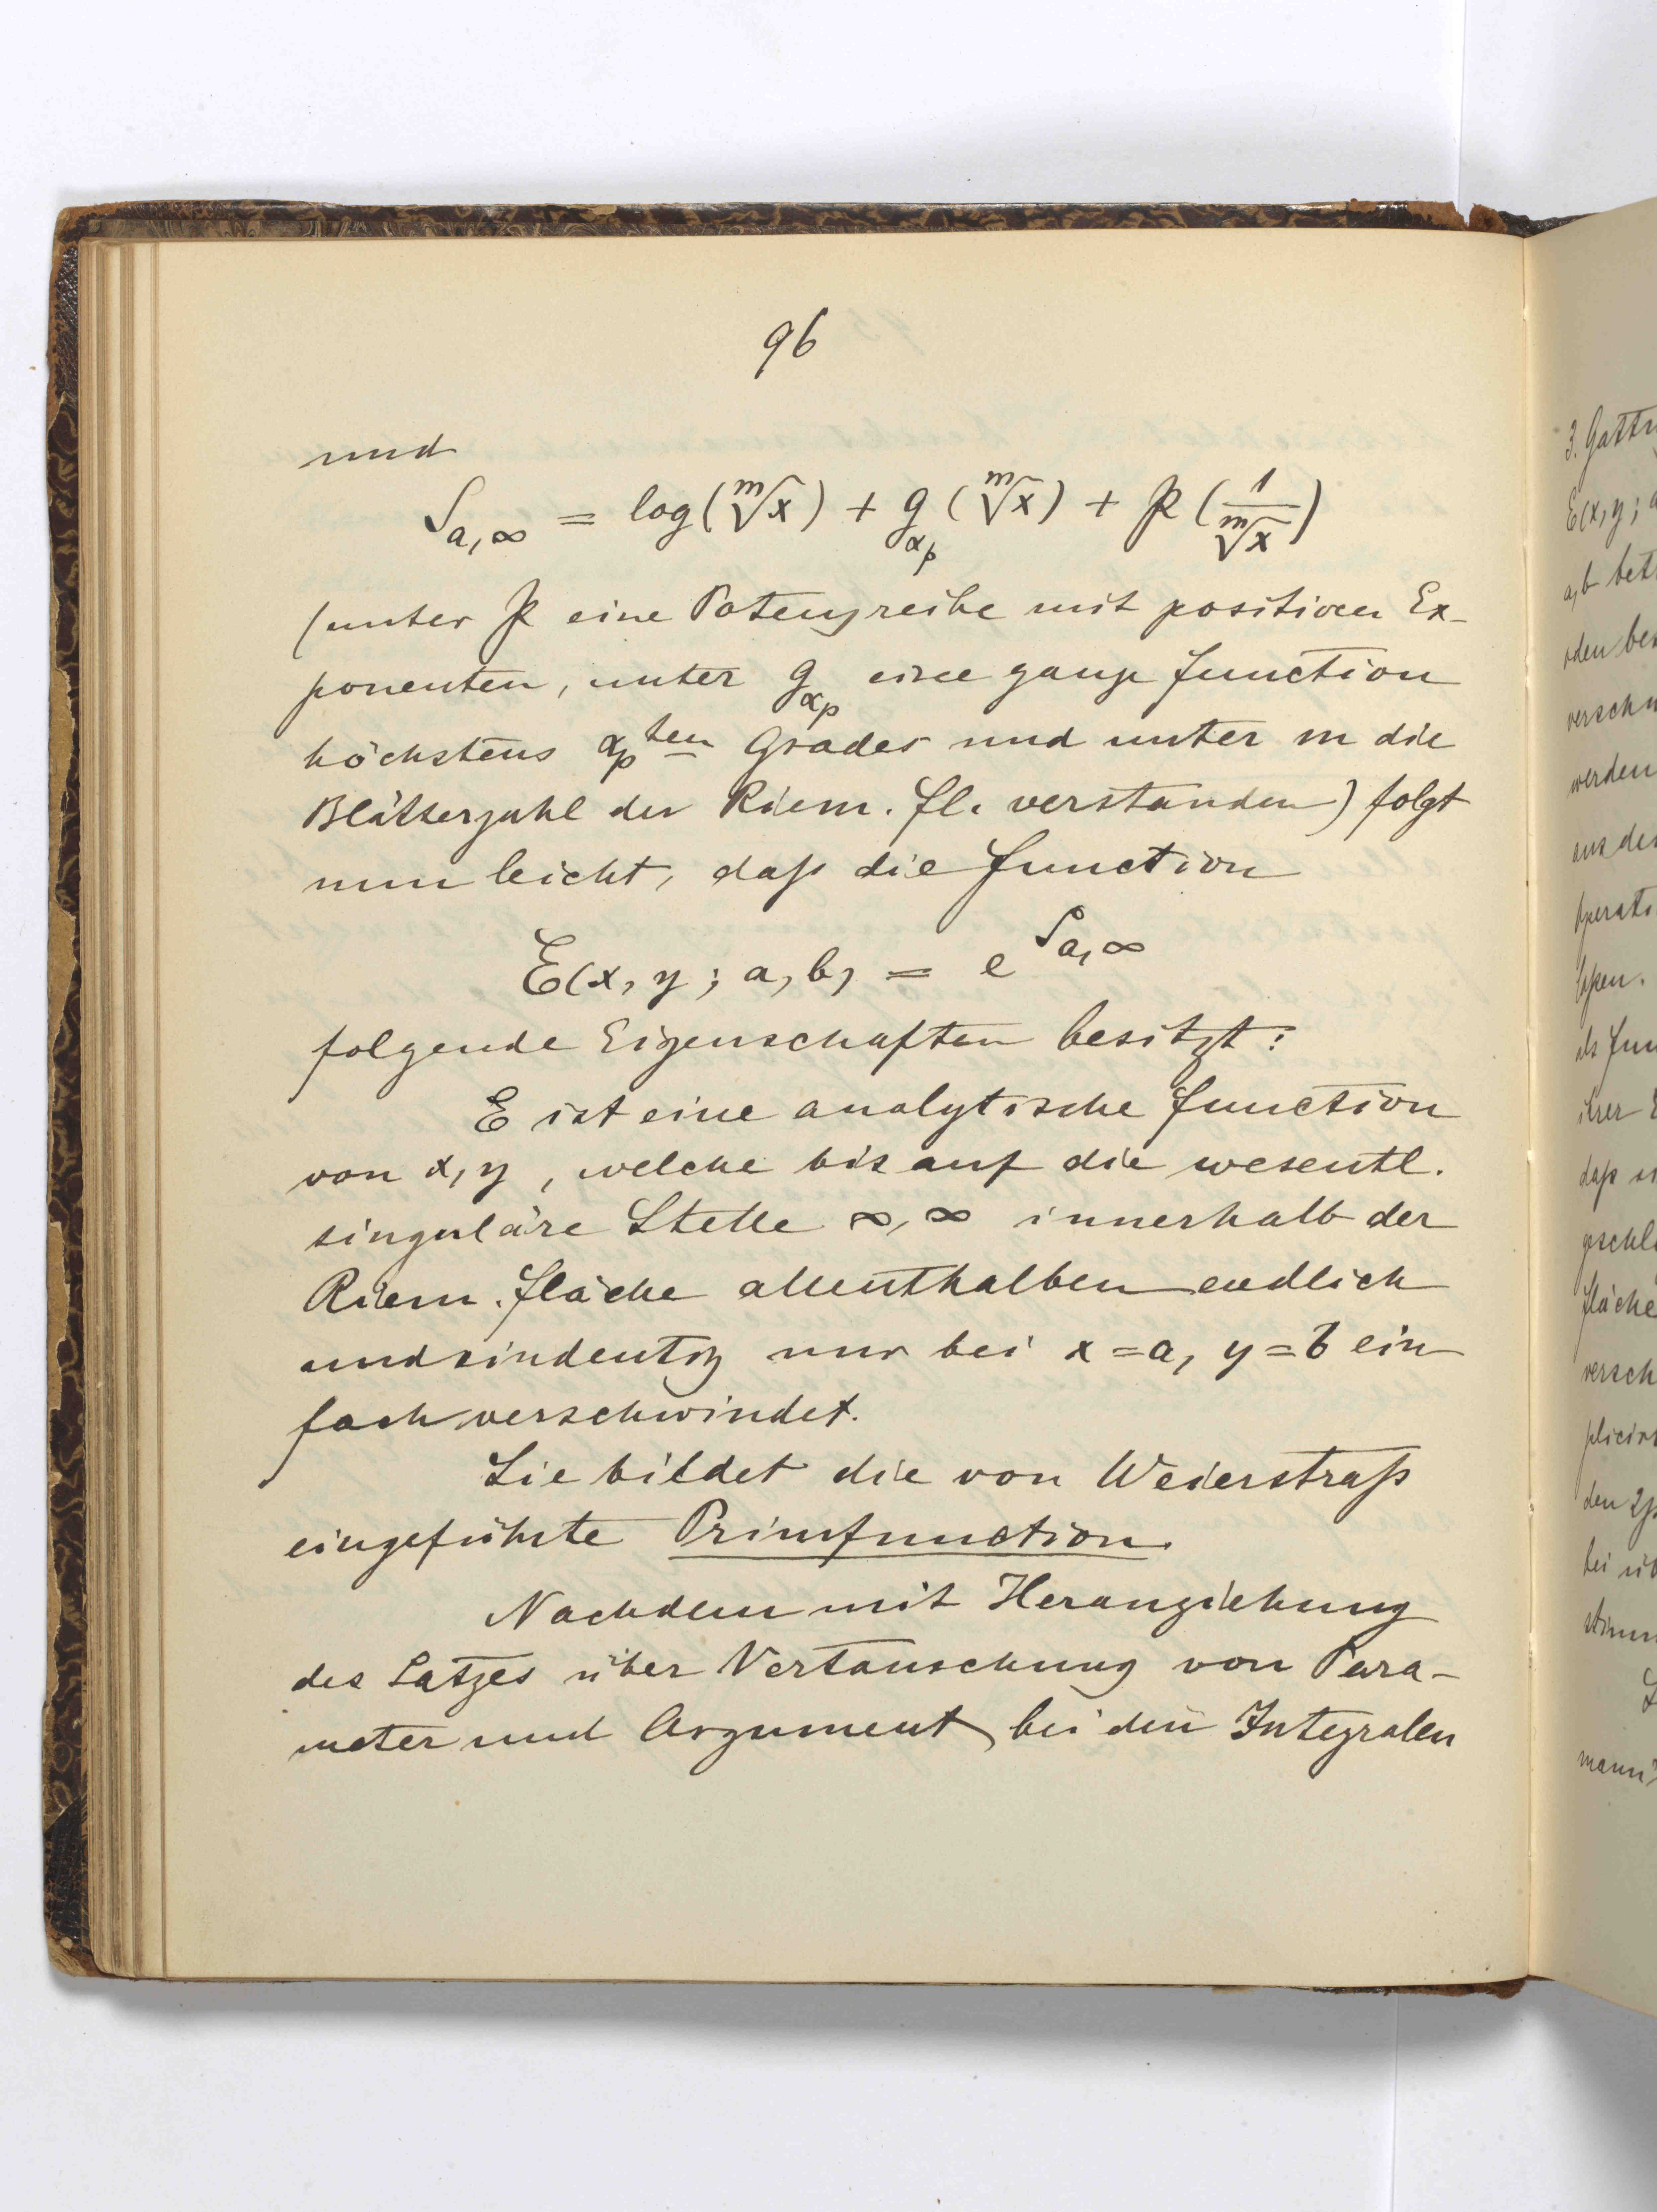 96
und
S_{a,∞} = log(\sqrt[m]{x}) + g_{α_p}(\sqrt[m]{x}) + P(\frac{1}{\sqrt[m]{x}})
(unter P eine Potenzreihe mit positiven Ex-
ponenten, unter g_{α_p} eine ganze Function
höchstens α_p^{ten} Grades und unter m die
Blätterzahl der Riem. Fl. verstanden) folgt
nun leicht, daß die Function
E(x, y; a, b) = e^{S_{a,∞}}
folgende Eigenschaften besitzt:
E ist eine analytische Function
von x, y, welche bis auf die wesentl.
singuläre Stelle ∞, ∞ innerhalb der
Riem. Fläche allenthalben endlich
und eindeutig nur bei x = a, y = b ein
fach verschwindet.
Sie bildet die von Weierstraß
eingeführte Primfunction.
Nachdem mit Heranziehung
des Satzes über Vertauschung von Para-
meter und Argument bei den Integralen
3. Gatt
E(x, y; a
a, b bet
rden bes
versch
werden
aus de
Operati
als Fun
ihrer E
daß
geschl
Fläche
versch
plicirt
den 2p
bei üb
stimm
mann